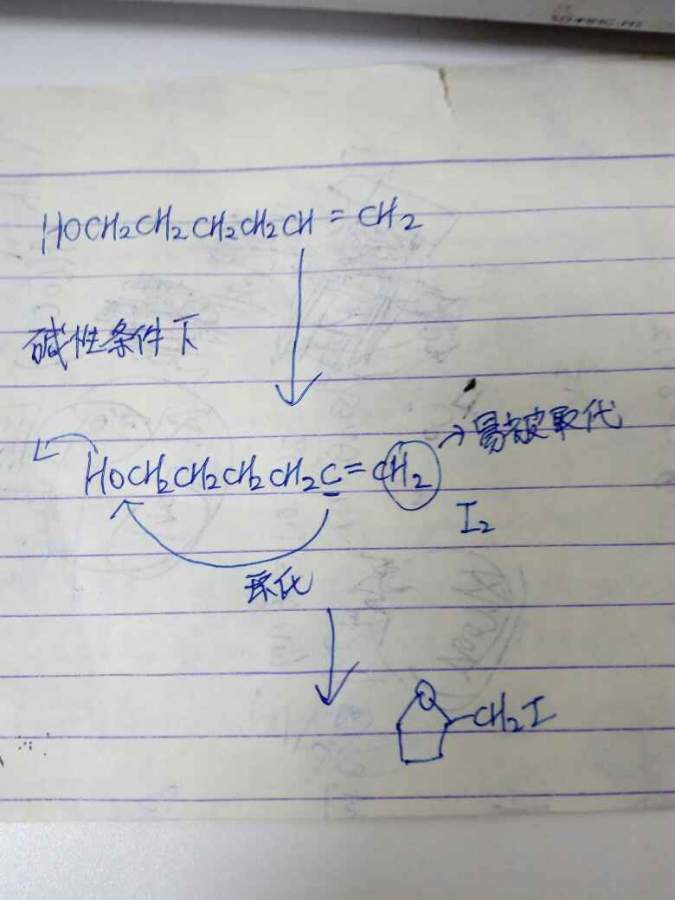 HOCH2CH2CH2CH2CH=CH2
碱性条件下
→易被取代
HOCH2CH2CH2CH2C=CH2
I2
环化
O
-CH2I